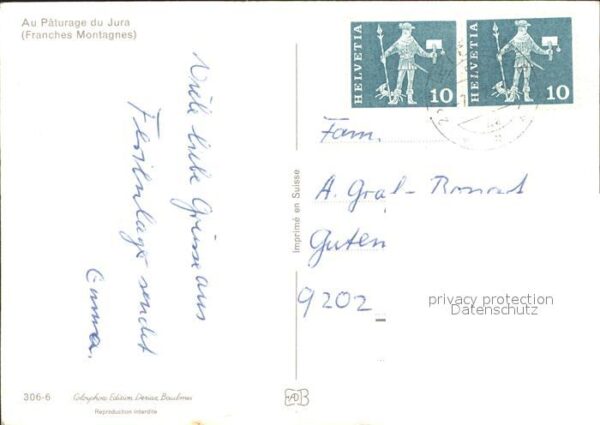 Au Pâturage du Jura
(Franches Montagnes)
HELVETIA 10
HELVETIA 10
Viele liebe Grüsse aus
sendet
Emma.
Imprimé en Suisse
Fam.
A. Graf-
Guten
9202
privacy protection
Datenschutz
306-6
Colorphoto Edition Deriaz Baulmes
Reproduction interdite